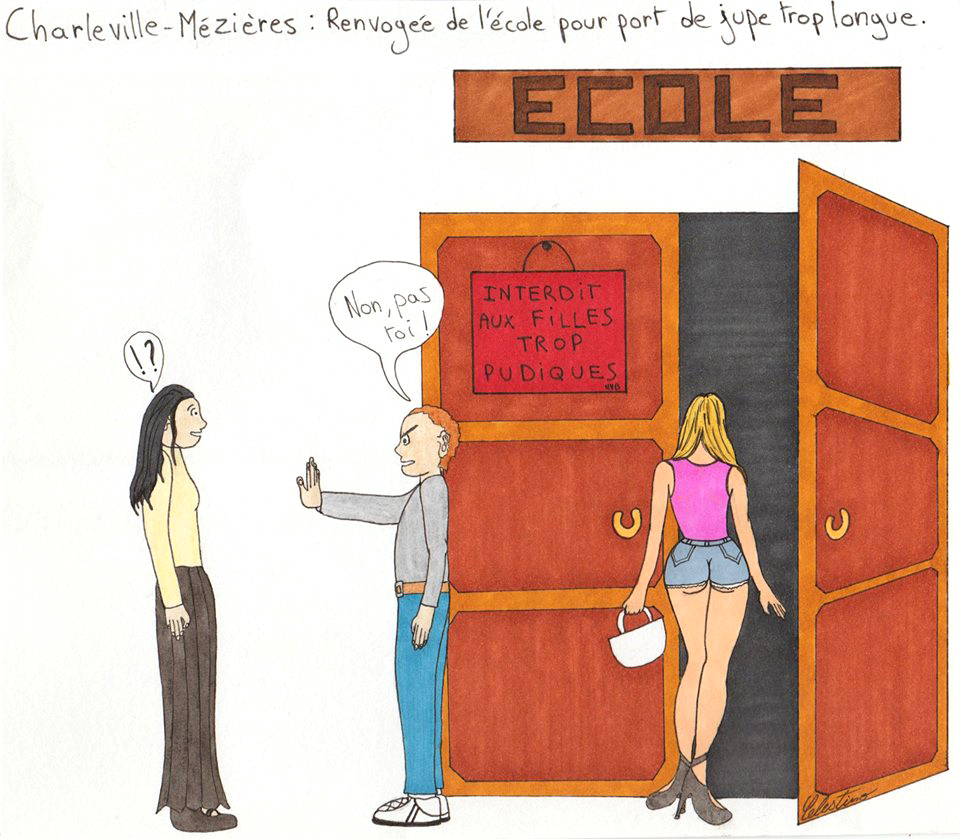 Charleville-Mézières : Renvogée de l'école pour port de jupe trop longue.
ECOLE
INTERDIT
AUX FILLES
TROP
PUDIQUES
Non, pas
toi !
!?
Celestine